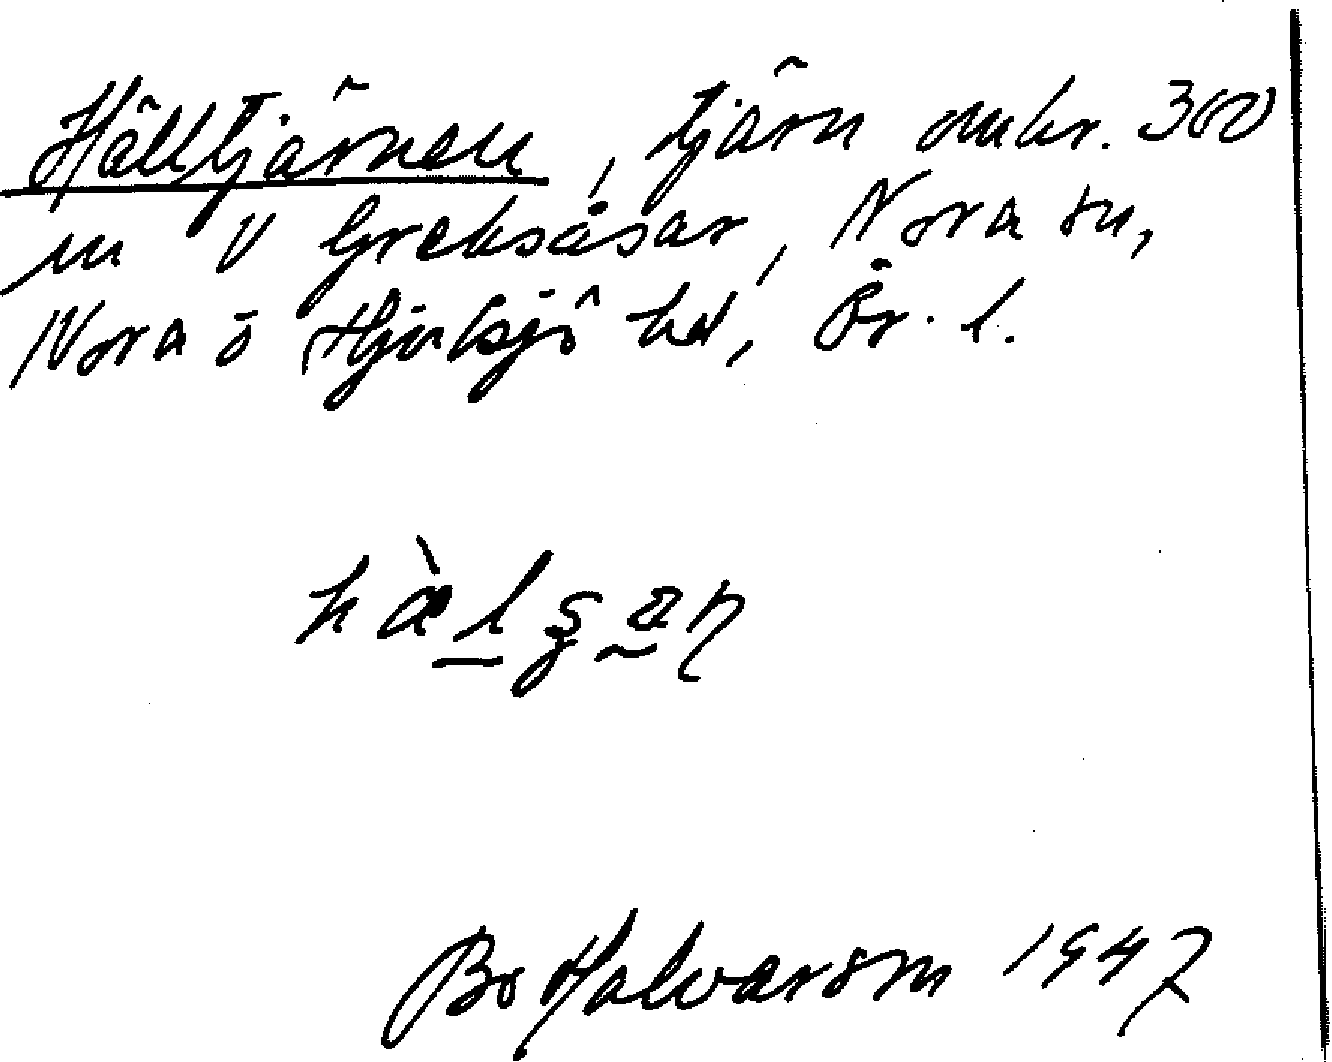 Hälltjärnen, tjärn omkr. 300
m V Greksåsar, Nora sn,
Nora o Hjulsjö hd, Ör. l.
Bo Halvarson 1947